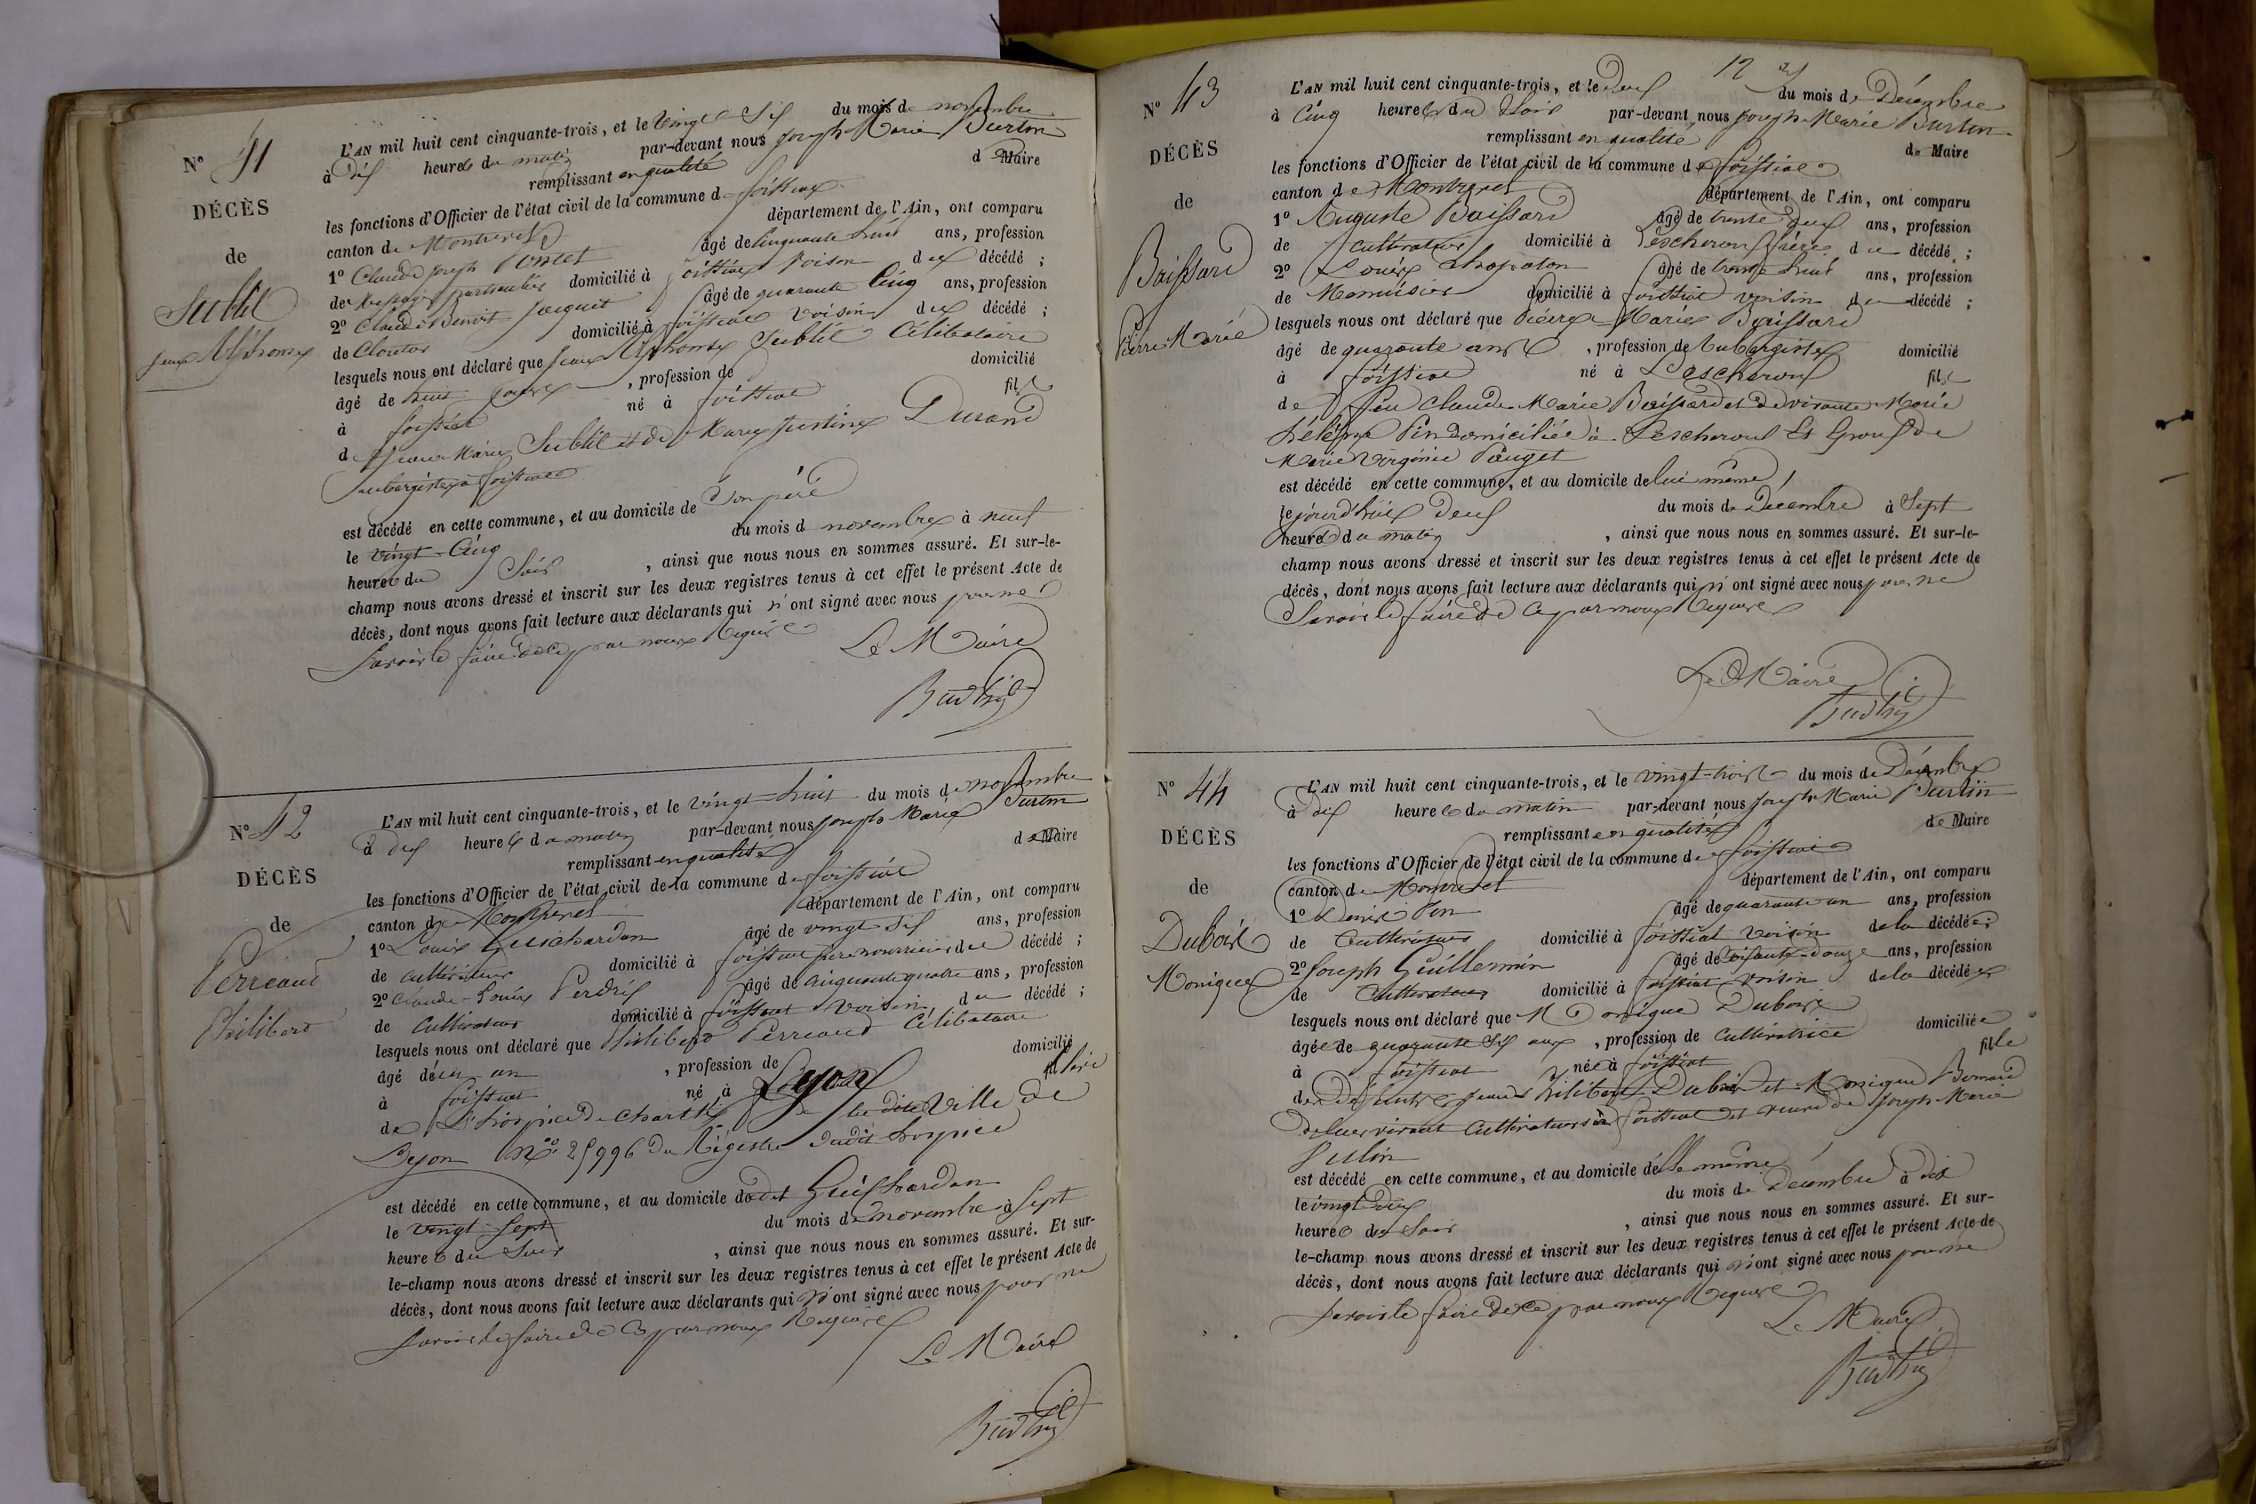 N° 41
DÉCÈS
de
Sublit
Jean Alphonse
L'AN mil huit cent cinquante-trois, et le vingt Six du mois de novembre
à dix heures du matin par-devant nous Joseph Marie Burtin
remplissant en qualité de Maire
les fonctions d'Officier de l'état civil de la commune de foissiat
canton de Montrevel département de l'Ain, ont comparu
1° Claude Joseph Poncet âgé de Cinquante huit ans, profession
de particulier domicilié à foissiat voisin du décédé ;
2° Claude Benoit Jacquet âgé de quarante Cinq ans, profession
de Cloutier domicilié à foissiat voisin du décédé ;
lesquels nous ont déclaré que Jean Alphonse Sublit Célibataire
âgé de huit jours , profession de domicilié
à foissiat né à foissiat fils
de Jean Marie Sublit et de Marie Justine Durand
aubergiste à foissiat
est décédé en cette commune, et au domicile de Son père
le vingt-Cinq du mois de novembre à neuf
heures du Soir , ainsi que nous nous en sommes assuré. Et sur-le-
champ nous avons dressé et inscrit sur les deux registres tenus à cet effet le présent Acte de
décès, dont nous avons fait lecture aux déclarants qui n'ont signé avec nous pour ne
Savoir le faire de ce par nous Requis
Le Maire
Burtin
N° 42
DÉCÈS
de
Perreaud
Philibert
L'AN mil huit cent cinquante-trois, et le vingt-huit du mois de novembre
à dix heures du matin par-devant nous Joseph Marie Burtin
remplissant en qualité de Maire
les fonctions d'Officier de l'état civil de la commune de foissiat
canton de Montrevel département de l'Ain, ont comparu
1° Louis Guichardan âgé de vingt Six ans, profession
de cultivateur domicilié à foissiat père nourricier du décédé ;
2° Claude-Louis Perdrix âgé de Cinquante quatre ans, profession
de Cultivateur domicilié à foissiat voisin du décédé ;
lesquels nous ont déclaré que Philibert Perreaud Célibataire
âgé de un an , profession de domicilié
à foissiat né à Lyon
de L'hospice de Charité de la dite Ville de
Lyon N° 25996 du Régistre dudit hospice
est décédé en cette commune, et au domicile dudit Guichardan
le vingt-Sept du mois de novembre à Sept
heures du Soir , ainsi que nous nous en sommes assuré. Et sur-
le-champ nous avons dressé et inscrit sur les deux registres tenus à cet effet le présent Acte de
décès, dont nous avons fait lecture aux déclarants qui n'ont signé avec nous pour ne
Savoir le faire de Ce par nous Requis
Le Maire
Burtin
12
N° 43
DÉCÈS
de
Boissard
Pierre Marie
L'AN mil huit cent cinquante-trois, et le deux du mois de Décembre
à Cinq heures du Soir par-devant nous Joseph Marie Burtin
remplissant en qualité de Maire
les fonctions d'Officier de l'état civil de la commune de foissiat
canton de Montrevel département de l'Ain, ont comparu
1° Auguste Boissard âgé de trente deux ans, profession
de Cultivateur domicilié à Lescheroux frère du décédé ;
2° Louis Chapolon âgé de trente huit ans, profession
de Menuisier domicilié à foissiat voisin du décédé ;
lesquels nous ont déclaré que Pierre Marie Boissard
âgé de quarante ans , profession de aubergiste domicilié
à foissiat né à Lescheroux fils
de feu Claude Marie Boissard et de vivante Marie
hélène Pin domiciliée à Lescheroux Et Epoux de
Marie virginie Pauget
est décédé en cette commune, et au domicile de lui même
le jourd'hui deux du mois de Décembre à Sept
heures du matin , ainsi que nous nous en sommes assuré. Et sur-le-
champ nous avons dressé et inscrit sur les deux registres tenus à cet effet le présent Acte de
décès, dont nous avons fait lecture aux déclarants qui n'ont signé avec nous pour ne
Savoir le faire de Ce par nous Requis
Le Maire
Burtin
N° 44
DÉCÈS
de
Dubois
Monique
L'AN mil huit cent cinquante-trois, et le vingt-trois du mois de Décembre
à dix heures du matin par-devant nous Joseph Marie Burtin
remplissant en qualité de Maire
les fonctions d'Officier de l'état civil de la commune de foissiat
canton de Montrevel département de l'Ain, ont comparu
1° Denis Pin âgé de quarante un ans, profession
de Cultivateur domicilié à foissiat voisin de la décédée
2° Joseph Guillermin âgé de soixante-douze ans, profession
de Cultivateur domicilié à foissiat voisin de la décédée
lesquels nous ont déclaré que Monique Dubois
âgée de quarante Six ans , profession de Cultivatrice domiciliée
à foissiat née à foissiat fille
de Défunts Jean Philibert Dubois et Monique Bernard
de leur vivant Cultivateurs à foissiat et veuve de Joseph Marie
est décédé en cette commune, et au domicile d'elle même
le vingt deux du mois de Décembre à dix
heures du Soir , ainsi que nous nous en sommes assuré. Et sur-
le-champ nous avons dressé et inscrit sur les deux registres tenus à cet effet le présent Acte de
décès, dont nous avons fait lecture aux déclarants qui n'ont signé avec nous pour ne
Savoir le faire de Ce par nous Requis
Le Maire
Burtin